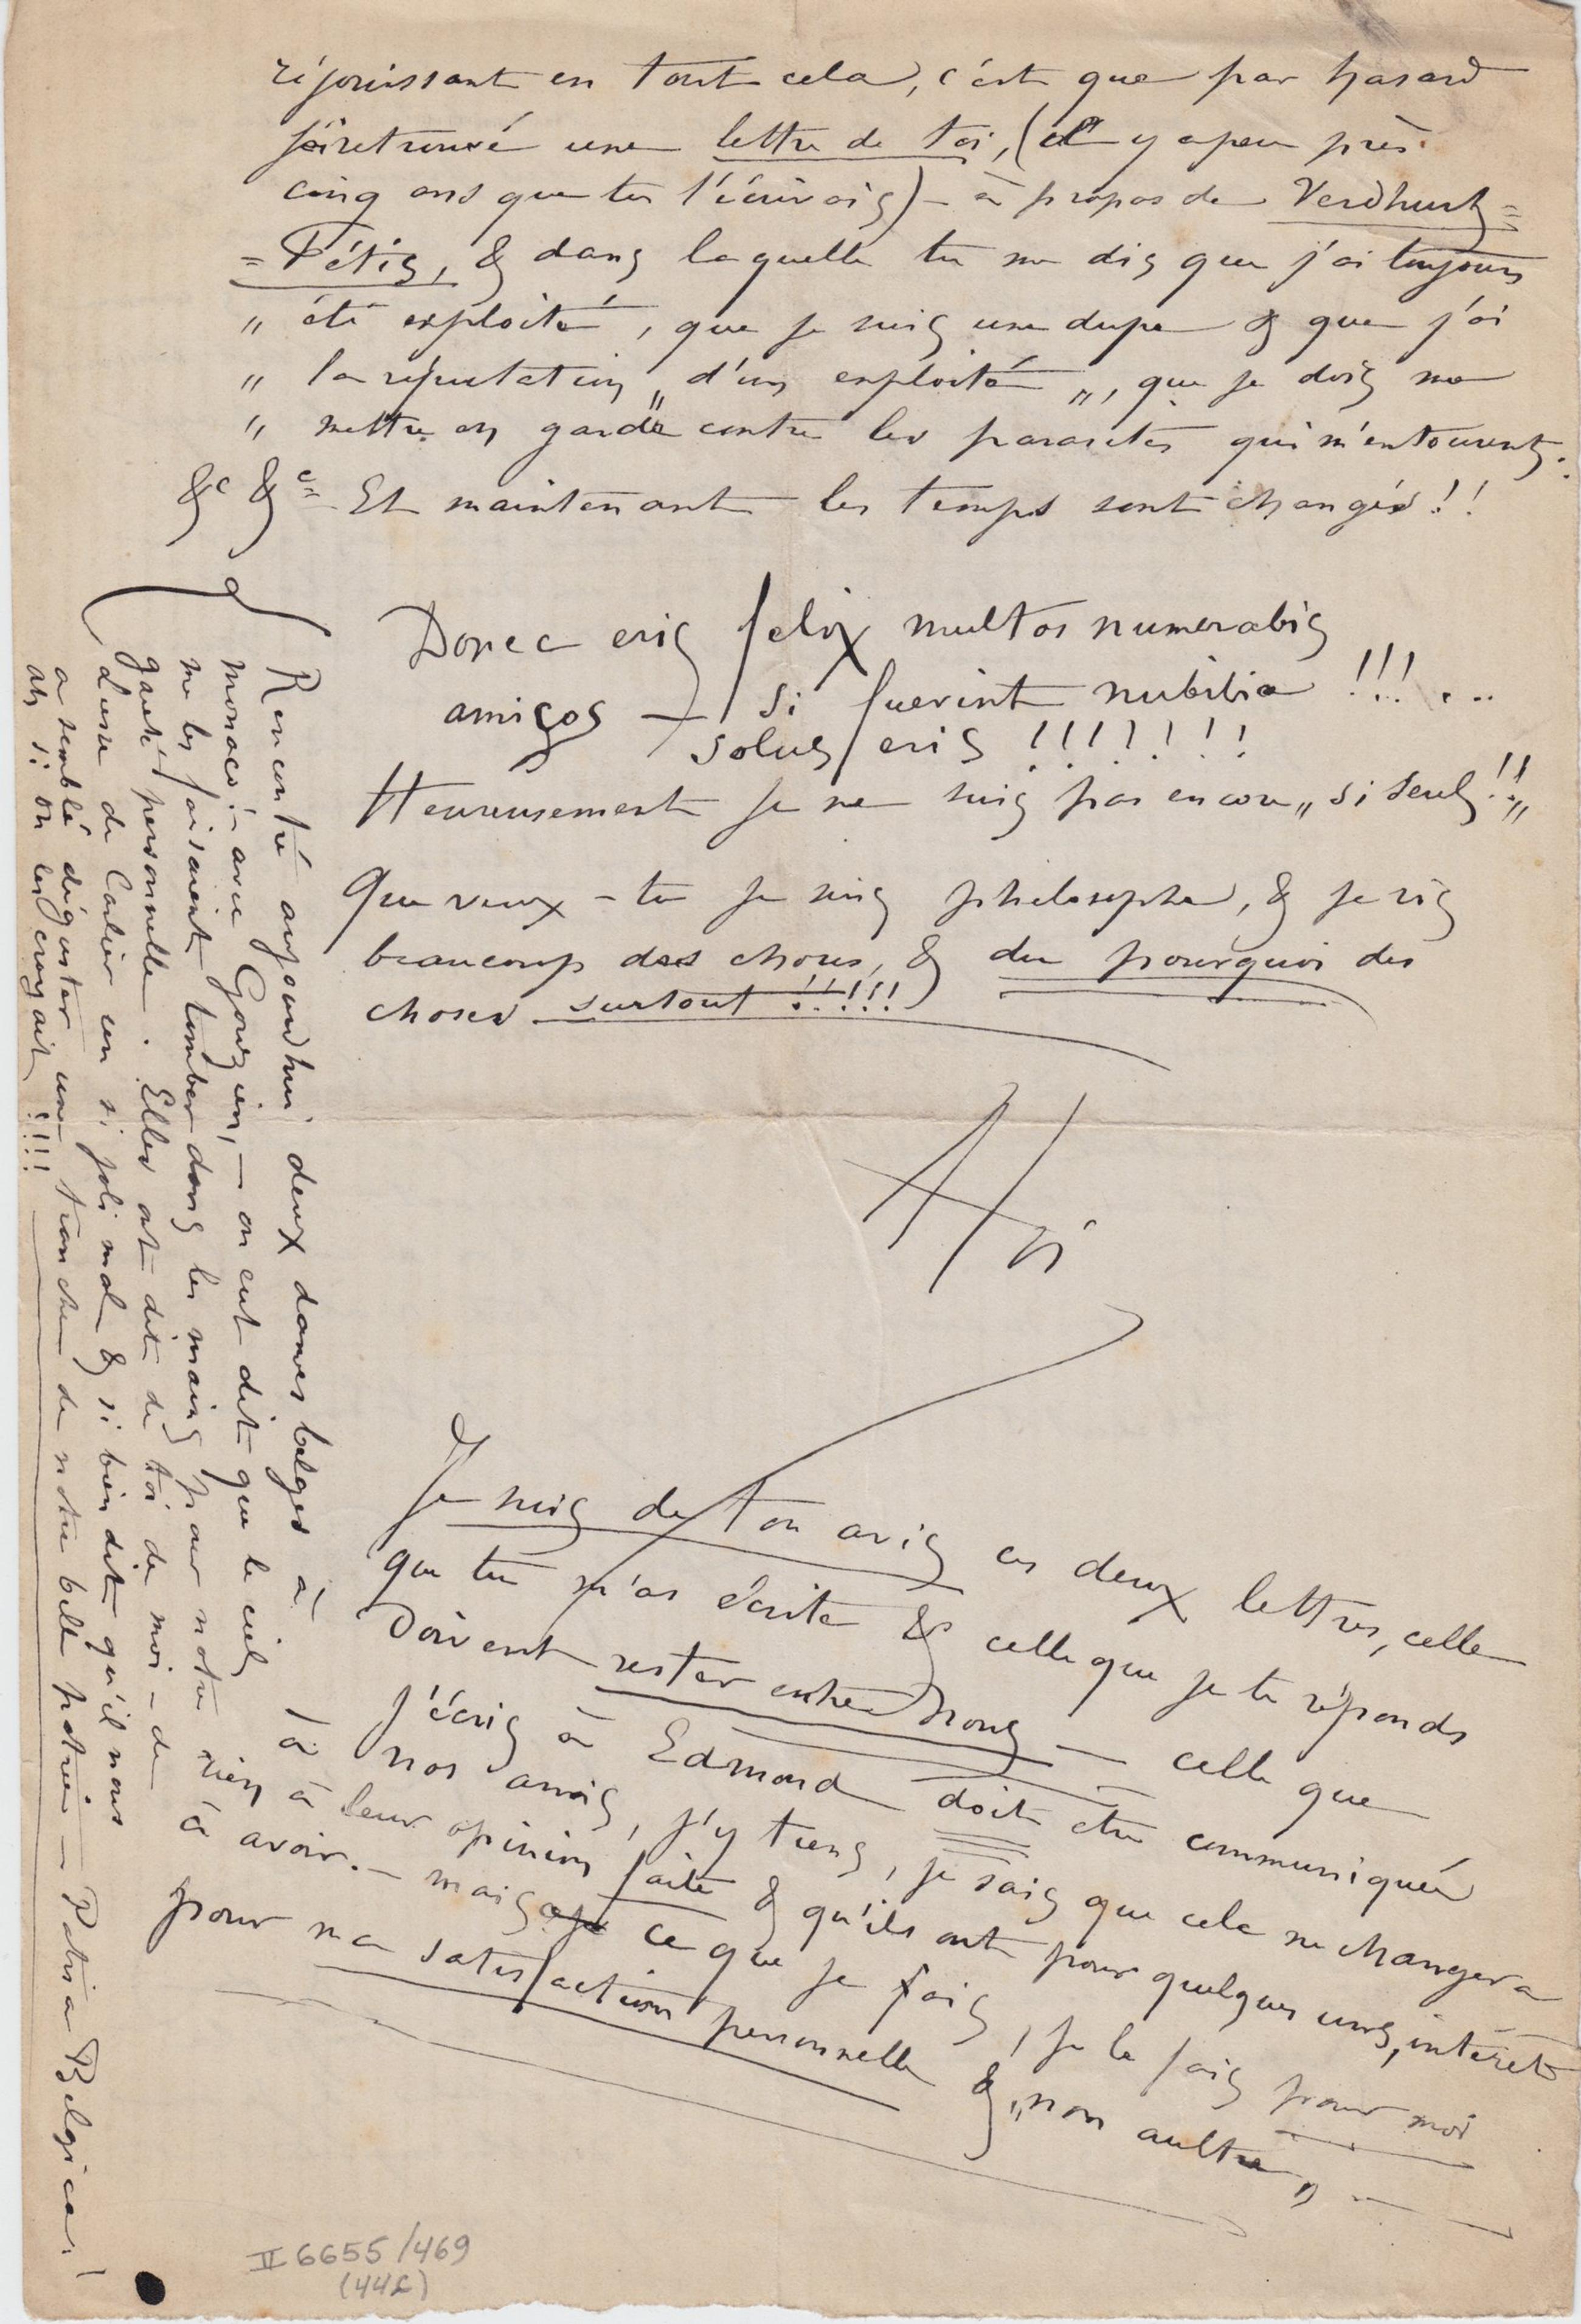 réjouissant en tout cela, c'est que par hasard
j'ai retrouvé une lettre de toi, (il y a peu près
cinq ans que tu l'écrivais) – à propos de Verdhurt=
=Fétis, & dans laquelle tu me dis que j'ai toujours
„ été exploité, que je suis une dupe & que j'ai
„ la réputation „ d'un exploité „, que je dois me
„ mettre en garde contre les parasites qui m'entourent.
&c &c= Et maintenant les temps sont changés!!
Donec eris felix multos numerabis
amicos – si fuerint nubilia !!! ...
solus eris !!!!!!!
Heureusement je ne suis pas encore „ si seul!!„
Que veux-tu je suis philosophe, & je ris
beaucoup des choses, & du pourquoi des
choses surtout !!!!!
Je suis de ton avis ces deux lettres, celle
que tu m'as écrite & celle que je te réponds
doivent rester entre nous – celle que
j'écris à Edmond doit etre communiquée
à nos amis, j'y tiens, je sais que cela ne changera
rien à leur opinion faite & qu'ils ont pour quelques uns, intérêt
à avoir. – mais ce que je fais, je le fais pour moi
pour ma satisfaction personnelle & „non aultre„ –
Rencontré aujourdhui deux dames belges à
Monaco! – avec Gouzien, – on eut dit que le ciel
me les faisaient tomber dans les mains pour notre
gaieté personnelle. Elles ont dit de toi de moi – de
Lesse de Carlier un si joli mal & si bien dit qu'il nous
a semblé déguster une tranche de notre belle patrie – Patria Belgica!
ah si on les croyait !!!!
II 6655/469
(44c)